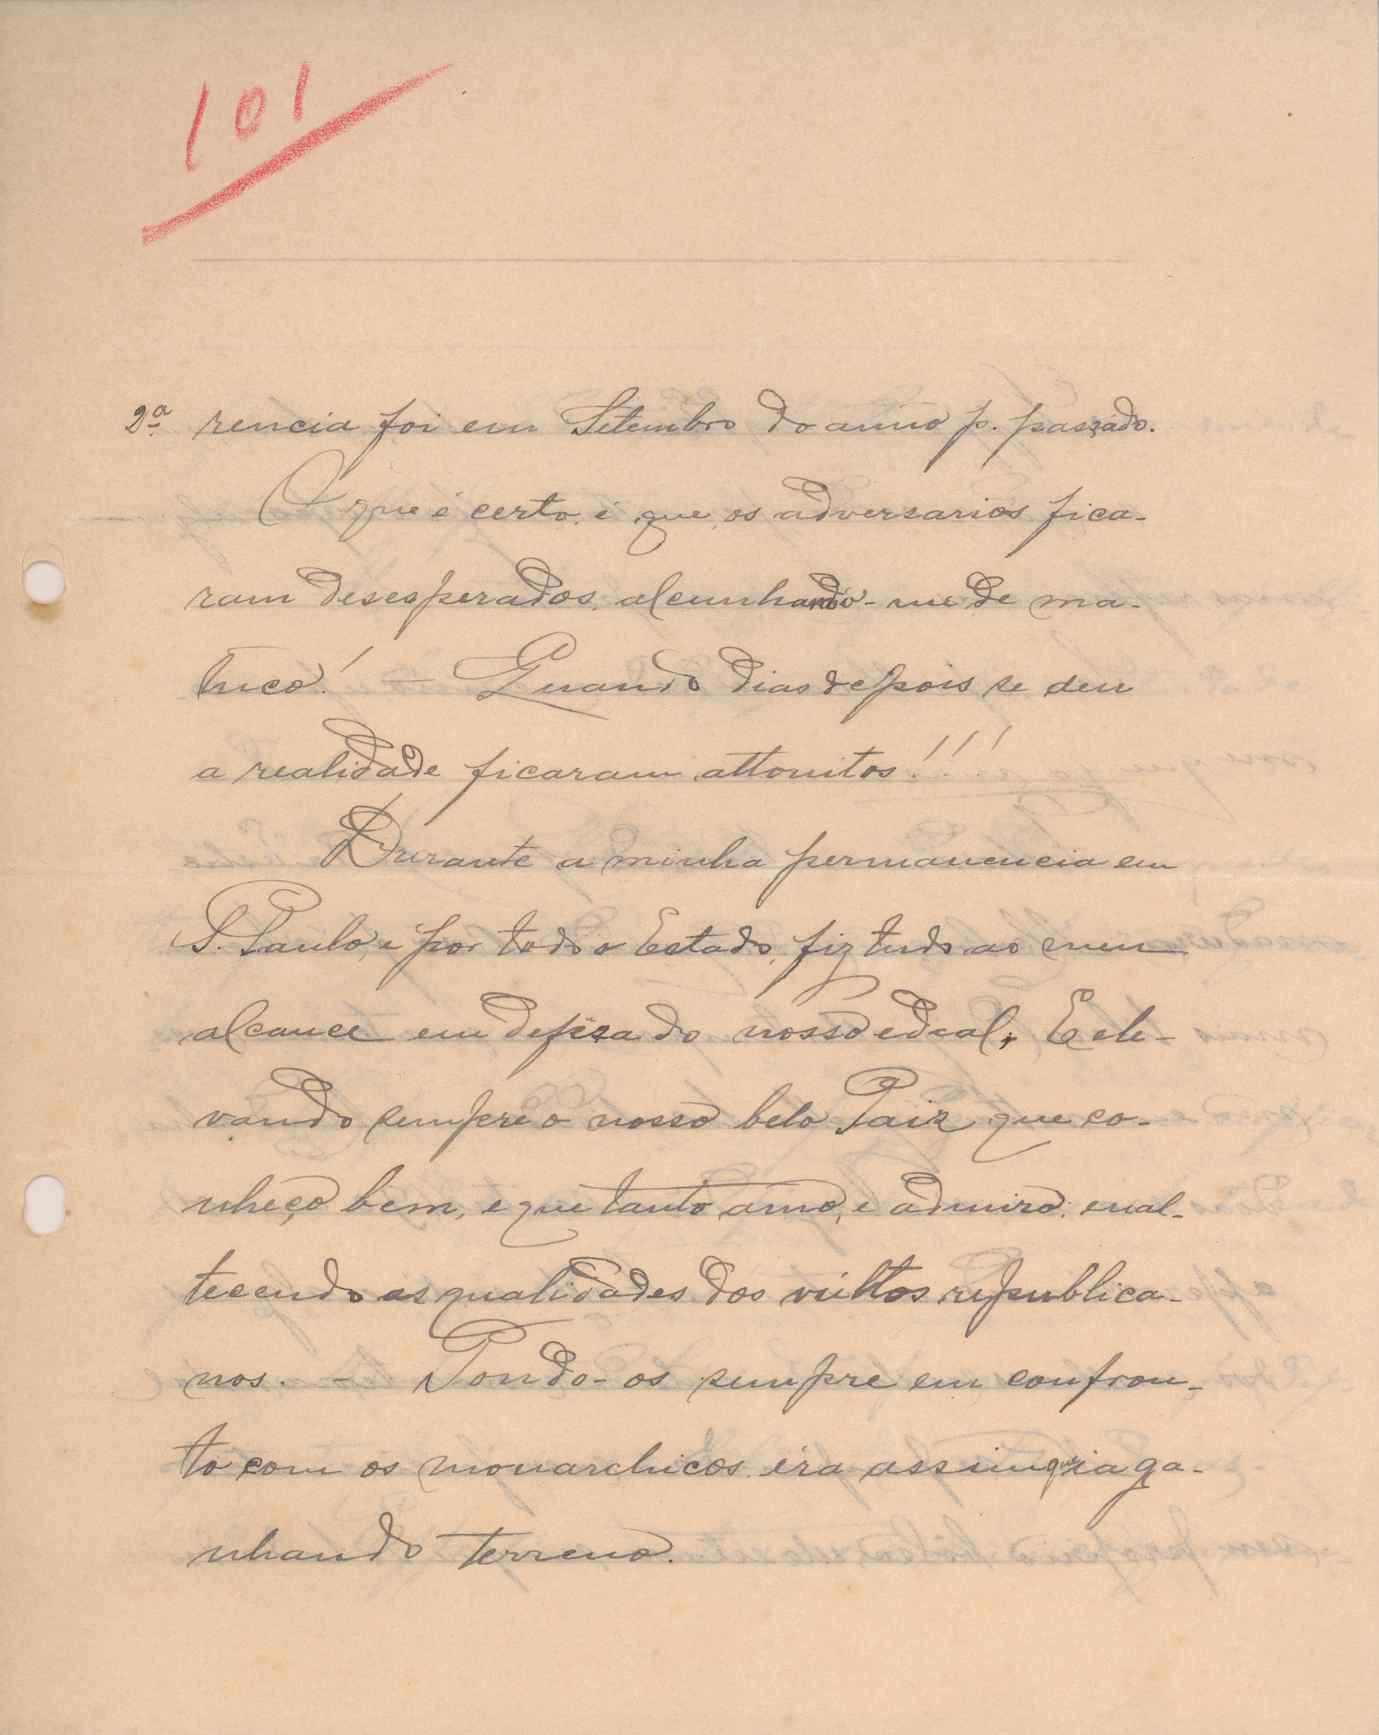 101
2ª rencia foi em Setembro do anno p. passado.
O que é certo, é que os adversarios fica-
ram desesperados, alcunhando-me de ma-
luco! — Quando dias depois se deu
a realidade ficaram attonitos!!!
Durante a minha permanencia em
S. Paulo, e por todo o Estado, fiz tudo ao meu
alcance em defeza do nosso edeal, E ele-
vando sempre o nosso belo Paiz que co-
nheço bem, e que tanto amo, e admiro, enal-
tecendo as qualidades dos vultos republica-
nos. — Pondo-os sempre em confron-
to com os monarchicos, éra assim que ia ga-
nhando terreno.